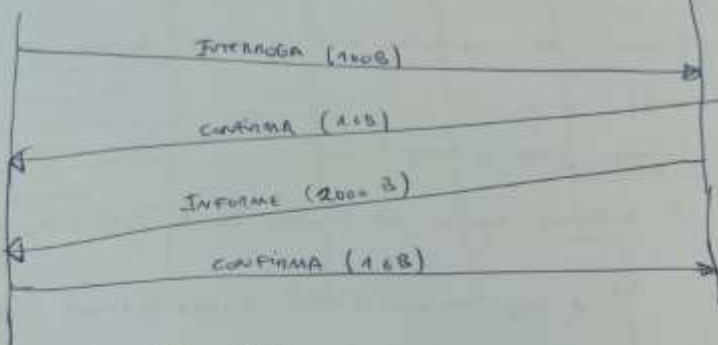 INTERROGA (100B)
CONFIRMA (16B)
INFORME (2000 B)
CONFIRMA (16B)